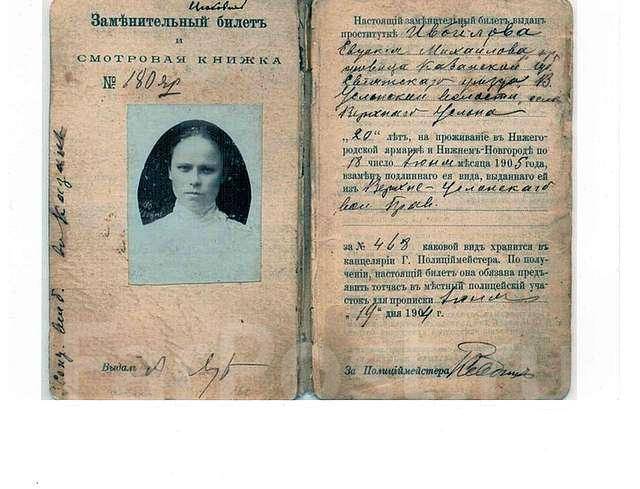 Замѣнительный билетъ
и
СМОТРОВАЯ КНИЖКА
№ 180 яр
Выдалъ
Настоящій замѣнительный билетъ выданъ
проституткѣ Ивойлова
Евдокія Михайлова кре-
стьянка Казанской губ.
Свіяжскаго уѣзда, В.
Услонской волости, села
Верхняго Услона
„20“ лѣтъ, на проживаніе въ Нижего-
родской ярмаркѣ и Нижнемъ-Новгородѣ по
18 число Іюня мѣсяца 1905 года,
взамѣнъ подлиннаго ея вида, выданнаго ей
изъ Верхне-Услонскаго
вол. Прав.
за № 463 каковой видъ хранится въ
канцеляріи Г. Полиціймейстера. По полу-
ченіи, настоящій билетъ она обязана предъ-
явить тотчасъ въ мѣстный полицейскій уча-
стокъ для прописки Іюня
„19“ дня 1904 г.
За Полиціймейстера